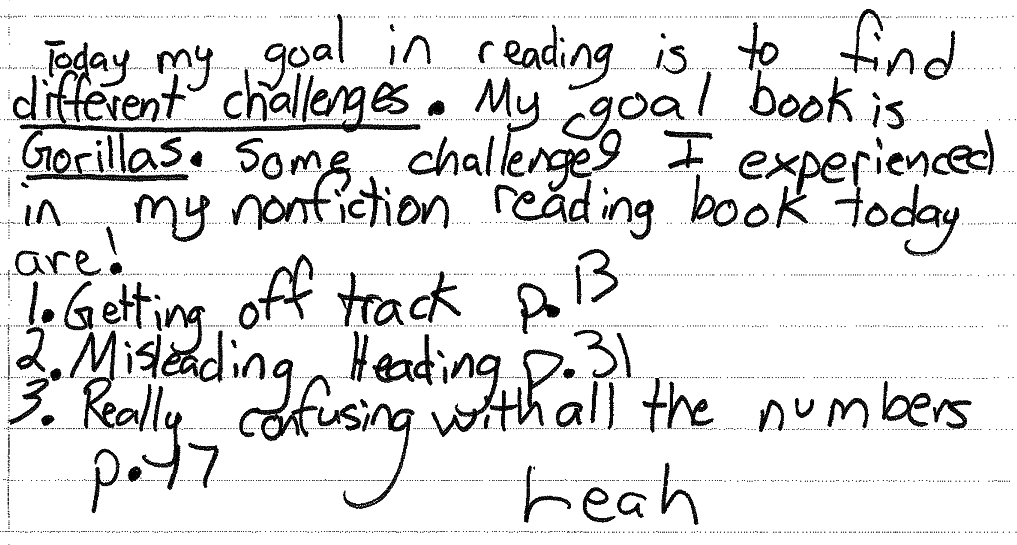 Today my goal in reading is to find
different challenges. My goal book is
Gorillas. Some challenges I experienced
in my nonfiction reading book today
are!
1. Getting off track p. 13
2. Misleading Heading p. 31
3. Really confusing with all the numbers
p. 47
Leah